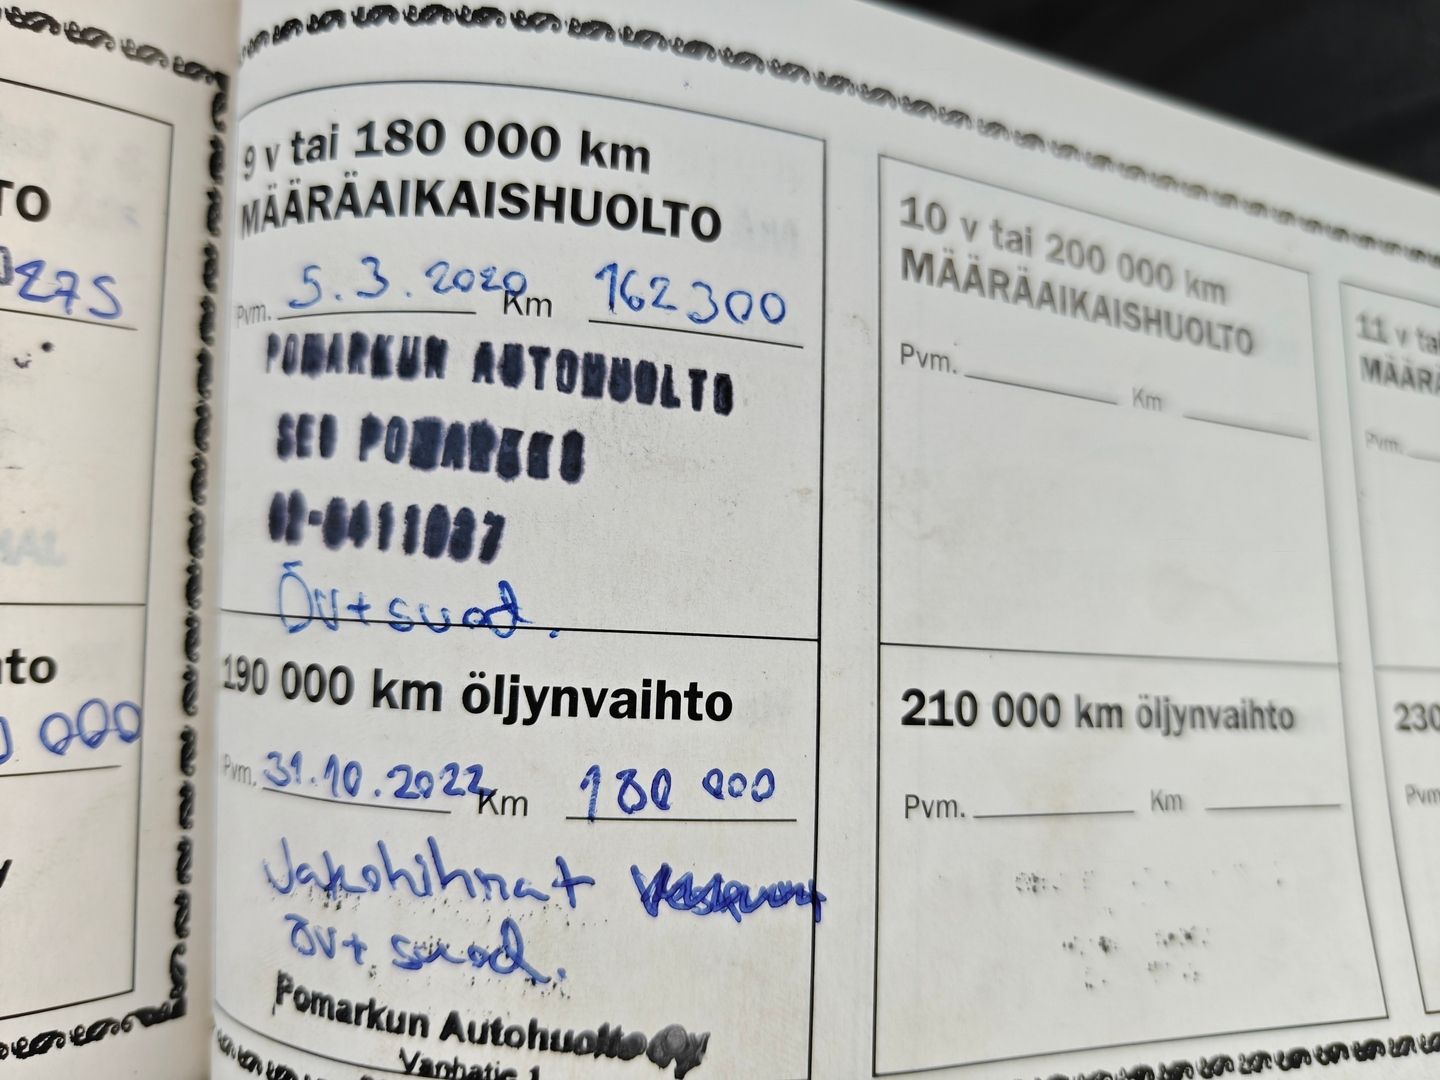 TO
275
9 v tai 180 000 km
MÄÄRÄAIKAISHUOLTO
Pvm. 5.3.2020 Km 162300
POMARKUN AUTOHUOLTO
SEO POMARKKU
02-5411087
Öv+ suod.
nto
000
190 000 km öljynvaihto
Pvm. 31.10.2022 Km 180 000
Jakohihnat
öv+ suod.
Pomarkun Autohuolto Oy
Vanhatie 1
10 v tai 200 000 km
MÄÄRÄAIKAISHUOLTO
Pvm. Km
210 000 km öljynvaihto
Pvm. Km
11 v tai
MÄÄRÄ
Pvm.
230
Pvm